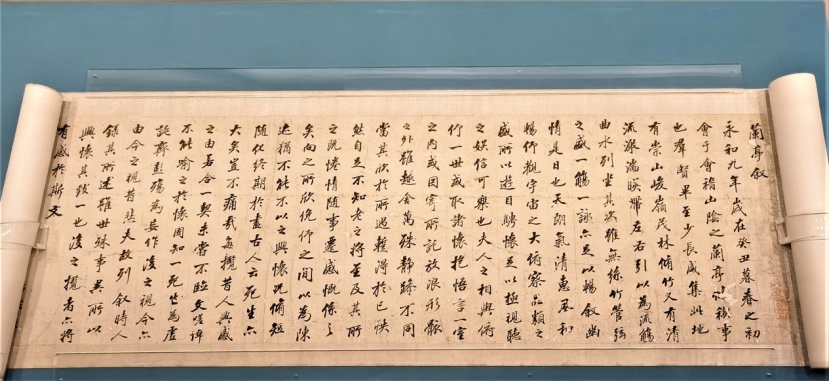 蘭亭叙
永和九年歲在癸丑暮春之初
會于會稽山陰之蘭亭脩禊事
也羣賢畢至少長咸集此地
有崇山峻嶺茂林脩竹又有清
流激湍暎帶左右引以為流觴
曲水列坐其次雖無絲竹管弦
之盛一觴一詠亦足以暢叙幽
情是日也天朗氣清惠風和
暢仰觀宇宙之大俯察品類之
盛所以遊目騁懷足以極視聽
之娛信可樂也夫人之相與俯
仰一世或取諸懷抱悟言一室
之內或因寄所託放浪形骸
之外雖趣舍萬殊靜躁不同
當其欣於所遇暫得於己怏
然自足不知老之將至及其所
之既惓情隨事遷感慨係之
矣向之所欣俛仰之間以為陳
迹猶不能不以之興懷況脩短
隨化終期於盡古人云死生亦
大矣豈不痛哉每攬昔人興感
之由若合一契未嘗不臨文嗟悼
不能喻之於懷固知一死生為虛
誕齊彭殤為妄作後之視今亦
由今之視昔悲夫故列叙時人
錄其所述雖世殊事異所以
興懷其致一也後之攬者亦將
有感於斯文